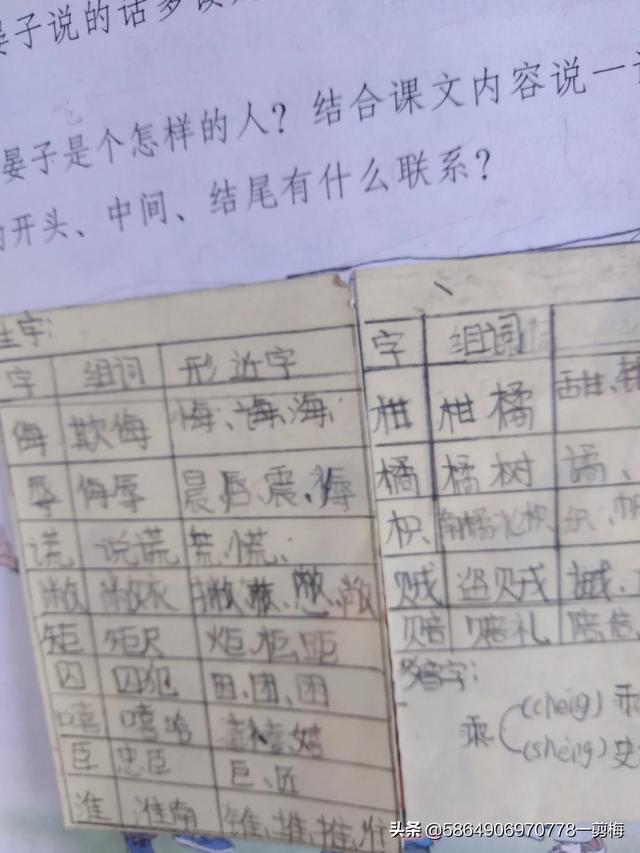 晏子说的话多读
晏子是个怎样的人？结合课文内容说一
的开头、中间、结尾有什么联系？
生字：
字 组词 形近字
侮 欺侮 悔、诲、海
辱 侮辱 晨、唇、震、
谎 说谎 荒、慌
敝 敝衣
矩 矩尺 炬、柜、距
囚 囚犯 团、困
嘻 嘻哈
臣 忠臣 巨、匠
淮 淮南 推
字 组词
柑 柑橘 甜、
橘 橘树
枳 南橘北枳 织、
贼 盗贼
赔 赔礼 陪、倍
多音字：
乘 (chéng) 乘
(shèng) 史
头条 @5864906970778一剪梅